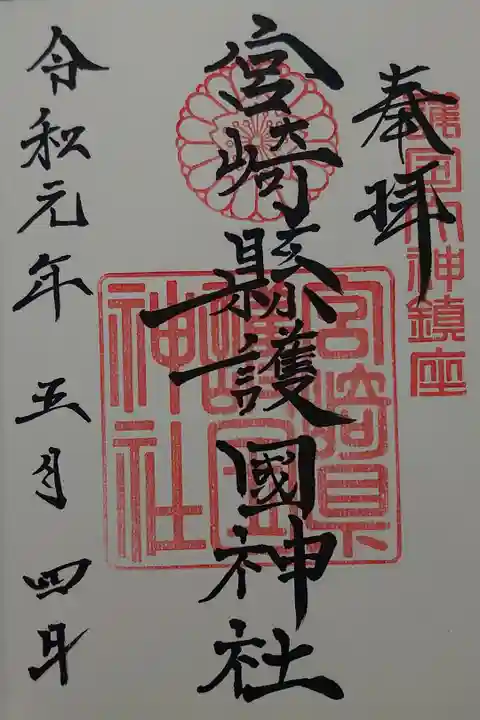 奉拝
護国大神鎮座
宮崎縣護國神社
宮崎県護国神社
令和元年 五月 四日